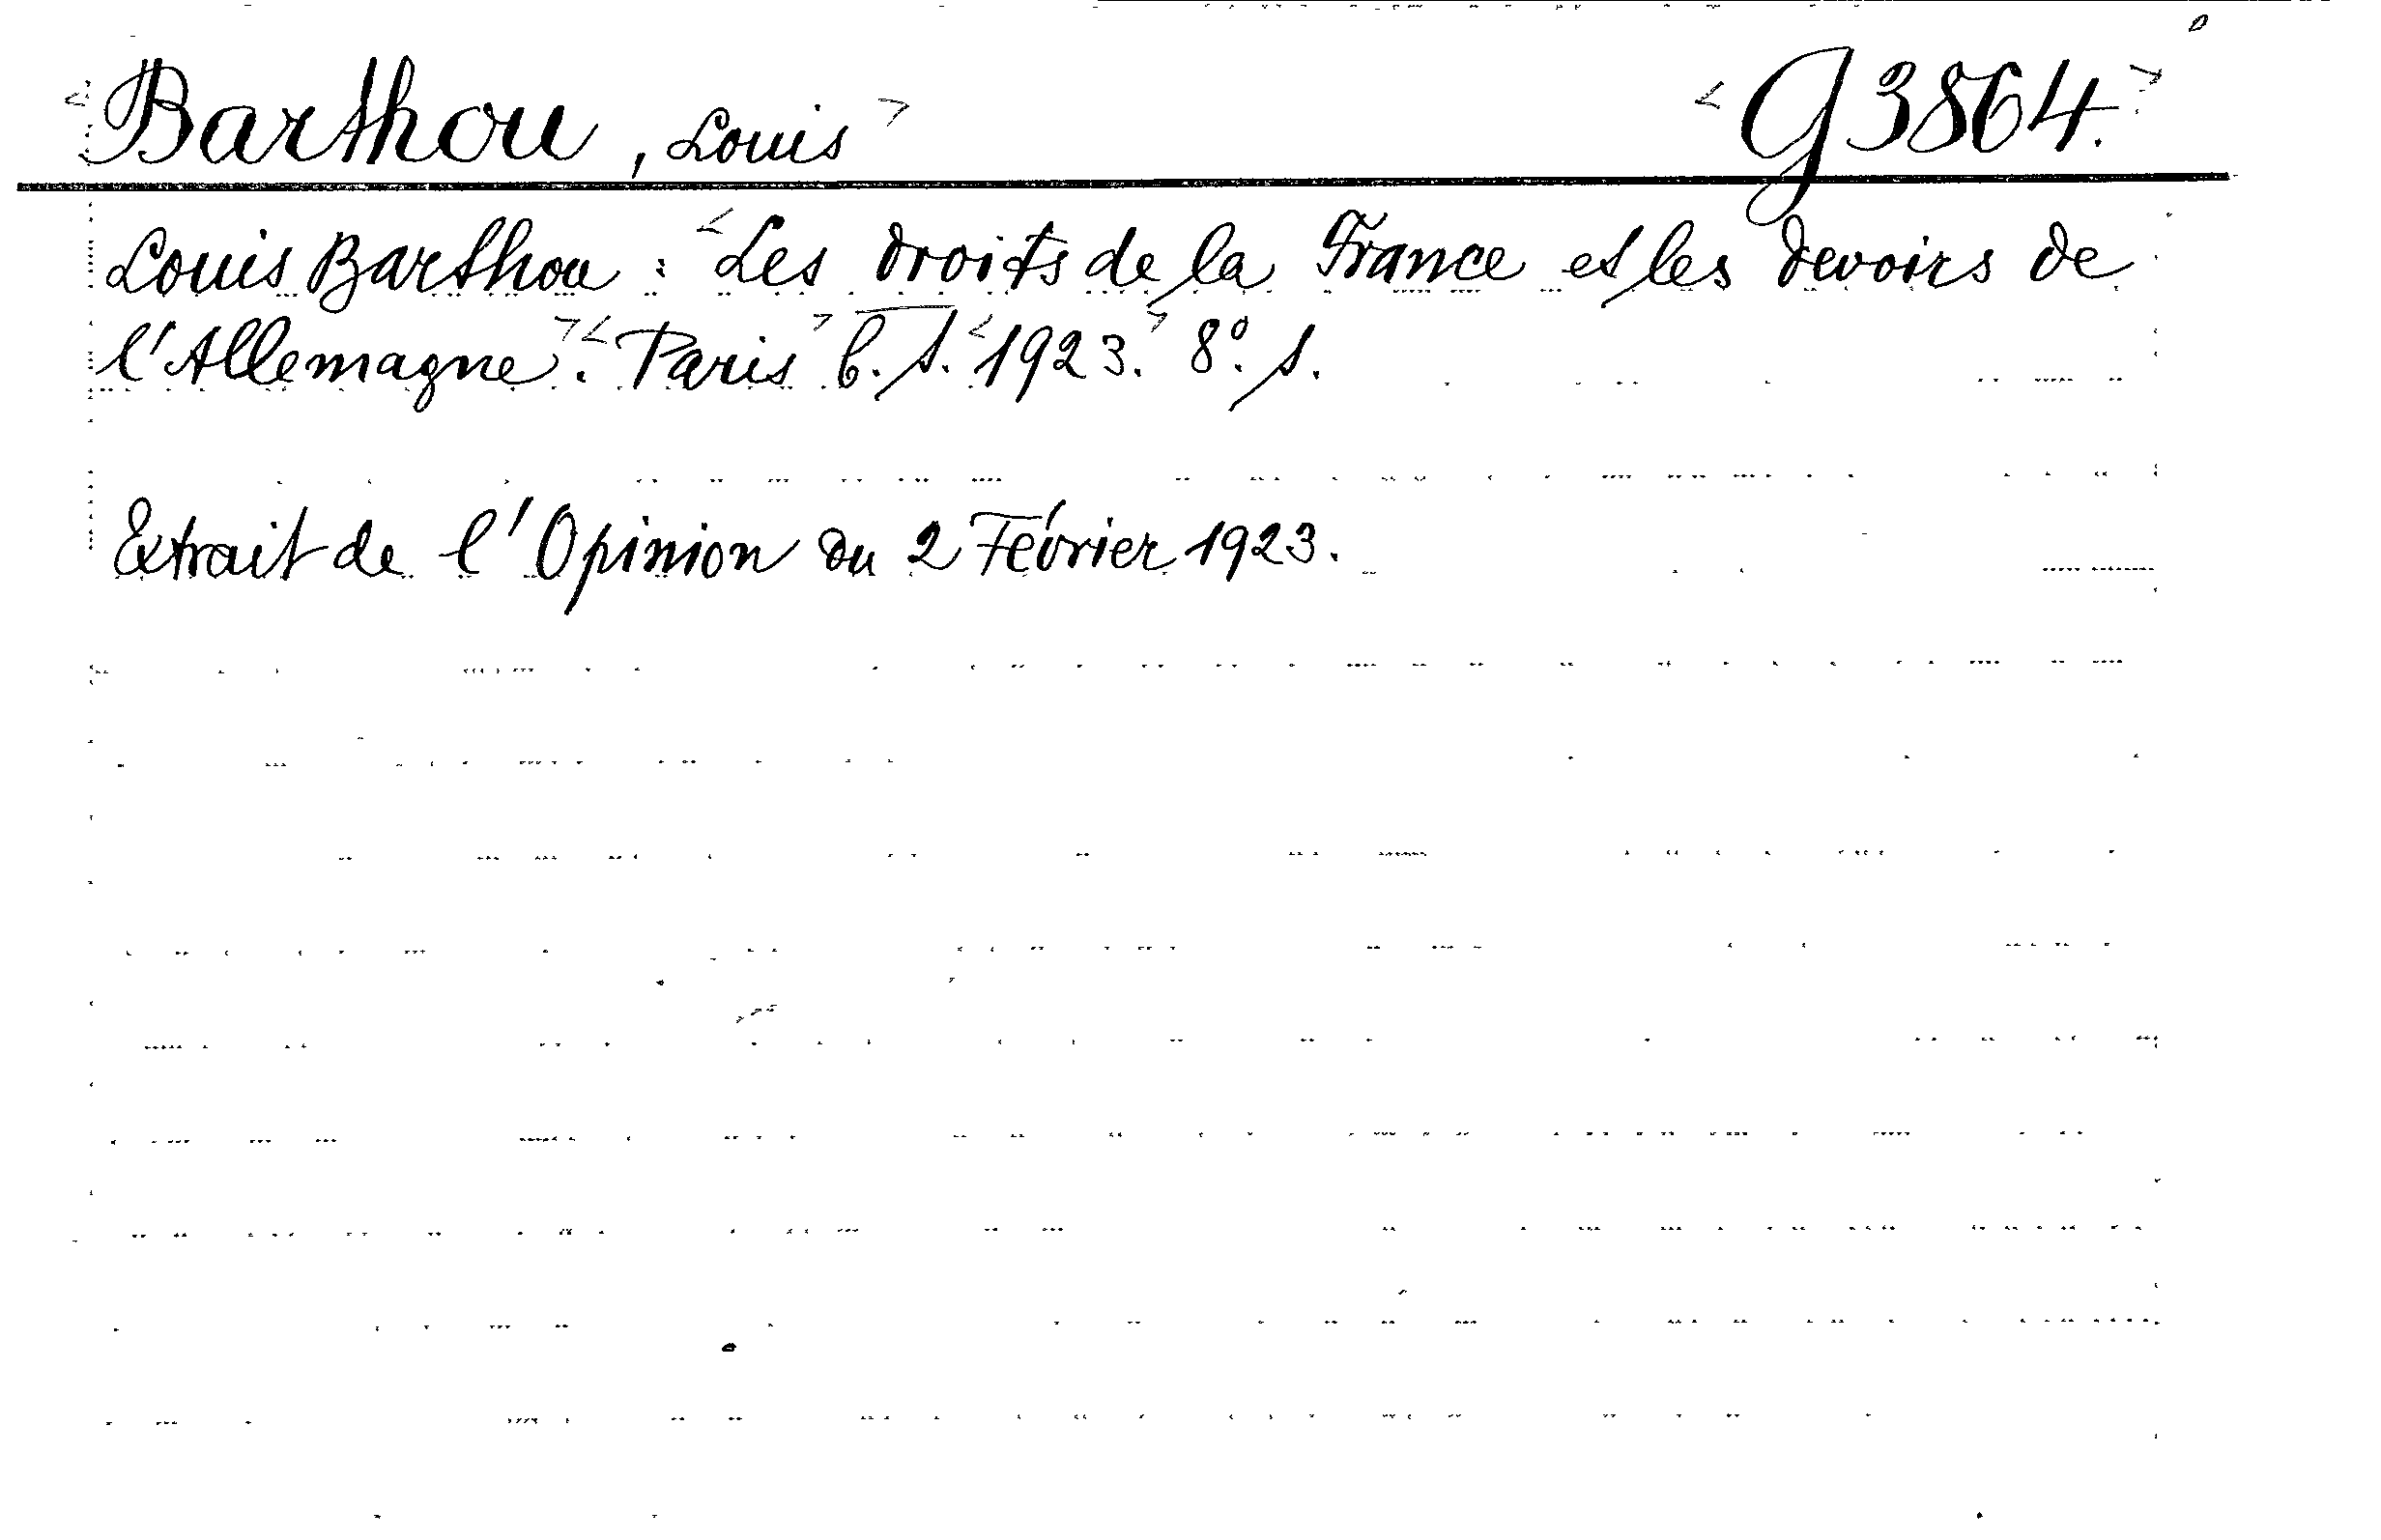 <Barthou, Louis> <G 3864.>
Louis Barthou: <Les droits de la France et les devoirs de
l'Allemagne>. <Paris> b. J. <1923.> 8°. s.
Extrait de l'Opinion du 2 Février 1923.